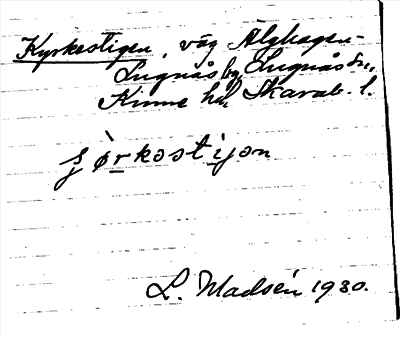 Kyrkostigen, väg Älghagen-
Lugnås by Lugnås sn.,
Kinne hd, Skarab. l.
ɕø̀rkostijən
L. Madsén 1930.